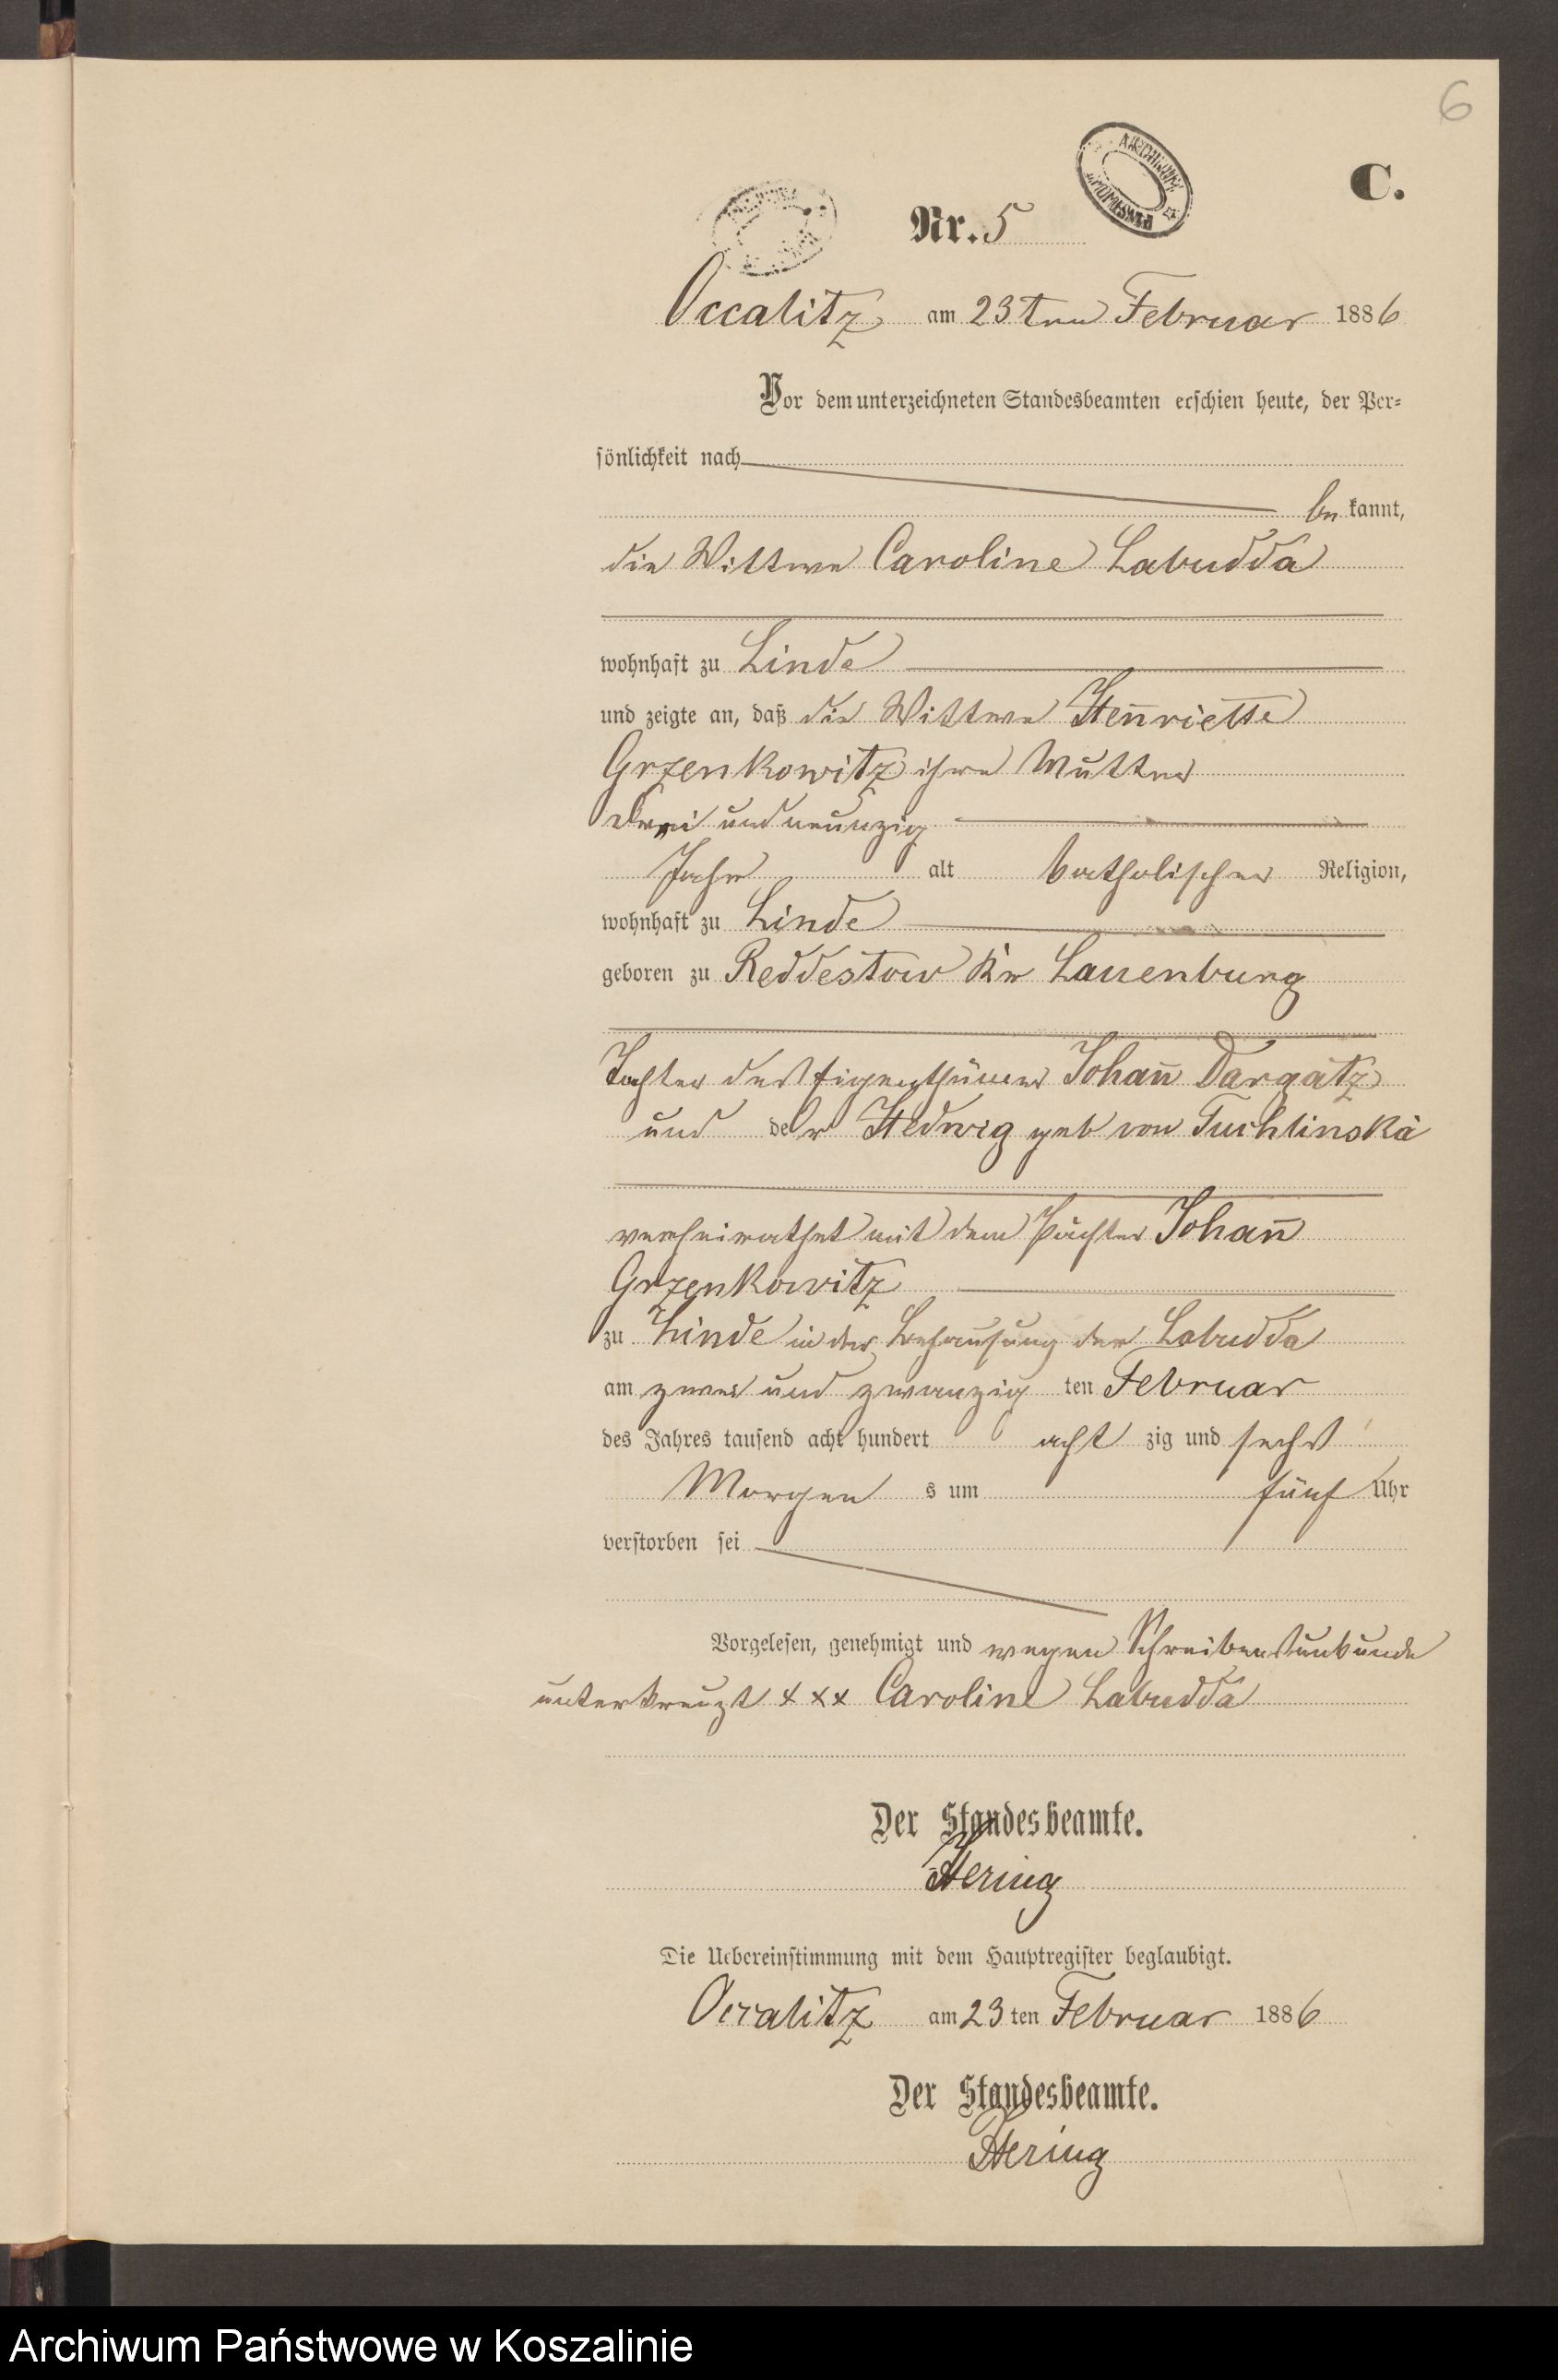 6
C.
Nr. 5
Occalitz am 23ten Februar 1886
Vor dem unterzeichneten Standesbeamten erschien heute, der Per-
sönlichkeit nach
be kannt,
die Wittwe Caroline Labudda
wohnhaft zu Linde
und zeigte an, daß die Wittwe Henriette
Grzenkowitz ihre Mutter
drei und neunzig
Jahr alt katholischer Religion,
wohnhaft zu Linde
geboren zu Reddestow Kr Lauenburg
Tochter des Eigenthümer Johann Dargatz
und der Hedwig geb von Tuchlinska
verheirathet mit dem Pächter Johann
Grzenkowitz
zu Linde in der Behausung der Labudda
am zwei und zwanzig ten Februar
des Jahres tausend acht hundert acht zig und sechs
Morgen s um fünf Uhr
verstorben sei
Vorgelesen, genehmigt und wegen Schreibensunkunde
unterkreuzt xxx Caroline Labudda
Der Standesbeamte.
Hering
Die Uebereinstimmung mit dem Hauptregister beglaubigt.
Occalitz am 23 ten Februar 1886
Der Standesbeamte.
Hering
Archiwum Państwowe w Koszalinie